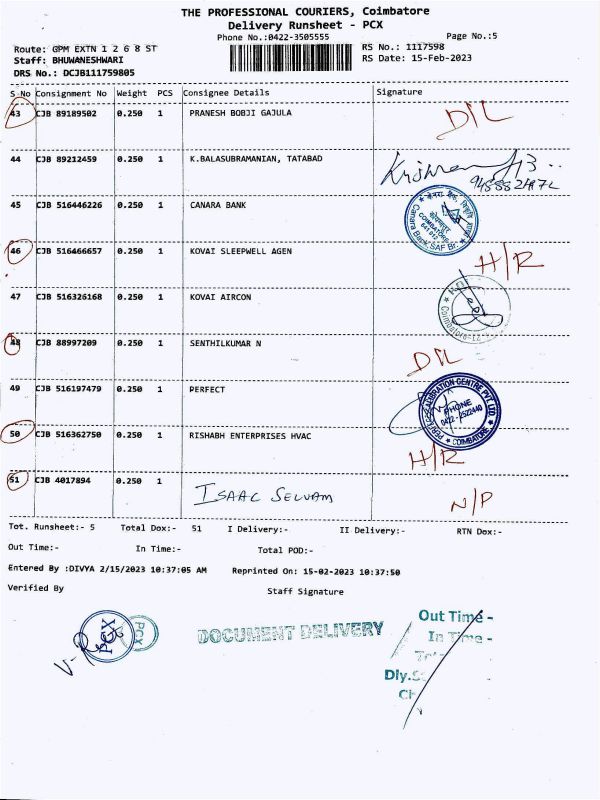 THE PROFESSIONAL COURIERS, Coimbatore
Delivery Runsheet - PCX
Phone No.:0422-3505555
Page No.:5
Route: GPM EXTN 1 2 6 8 ST
RS No.: 1117598
Staff: BHUWANESHWARI
RS Date: 15-Feb-2023
DRS No.: DCJB111759805
S No Consignment No Weight PCS Consignee Details Signature
43 CJB 89189502 0.250 1 PRANESH BOBJI GAJULA D/L
44 CJB 89212459 0.250 1 K.BALASUBRAMANIAN, TATABAD
45 CJB 516446226 0.250 1 CANARA BANK
46 CJB 516466657 0.250 1 KOVAI SLEEPWELL AGEN H/R
47 CJB 516326168 0.250 1 KOVAI AIRCON
48 CJB 88997209 0.250 1 SENTHILKUMAR N D/L
49 CJB 516197479 0.250 1 PERFECT
50 CJB 516362750 0.250 1 RISHABH ENTERPRISES HVAC H/R
51 CJB 4017894 0.250 1 ISAAC SELVAM N/P
Tot. Runsheet:- 5 Total Dox:- 51 I Delivery:- II Delivery:- RTN Dox:-
Out Time:- In Time:- Total POD:-
Entered By :DIVYA 2/15/2023 10:37:05 AM Reprinted On: 15-02-2023 10:37:50
Verified By Staff Signature
PCX PCX
DOCUMENT DELIVERY
Out Time -
In Time -
Dly.S